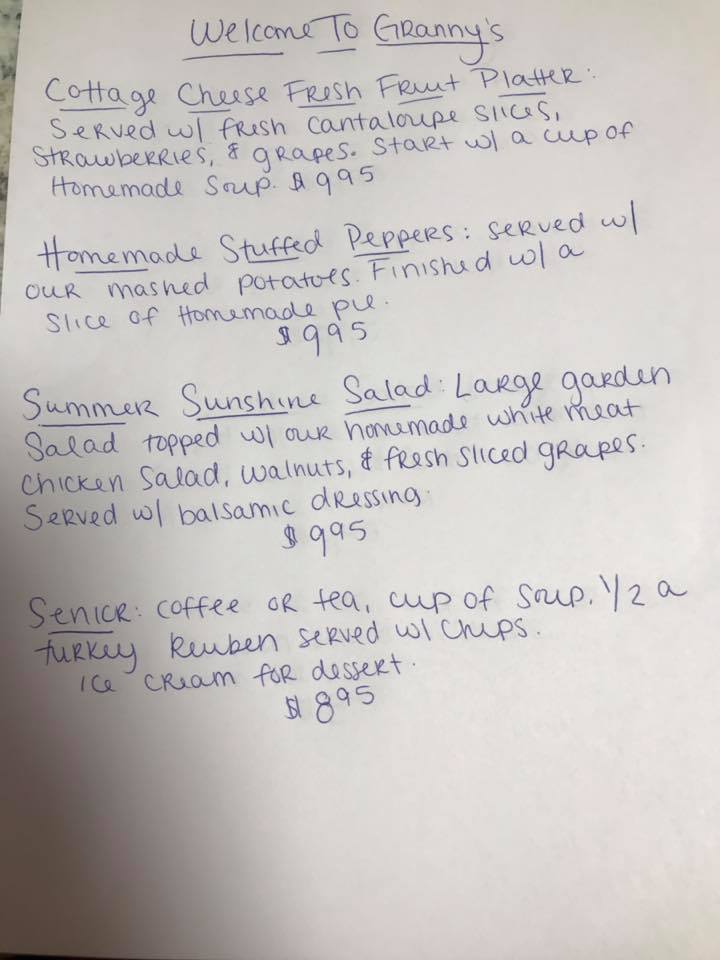 Welcome To Granny's
Cottage Cheese Fresh Fruit Platter:
Served w/ fresh cantaloupe slices,
strawberries, & grapes. Start w/ a cup of
Homemade Soup. $995
Homemade Stuffed Peppers: served w/
our mashed potatoes. Finished w/ a
slice of Homemade pie.
$995
Summer Sunshine Salad: Large garden
Salad topped w/ our homemade white meat
chicken salad, walnuts, & fresh sliced grapes.
Served w/ balsamic dressing.
$995
Senior: coffee or tea, cup of soup. 1/2 a
turkey Reuben served w/ chips.
ice cream for dessert.
$895